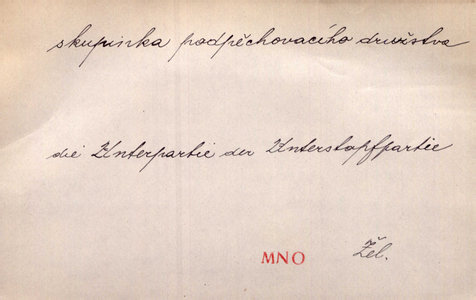 skupinka podpěchovacího družstva
die Unterpartie der Unterstopfpartie
MNO Žel.